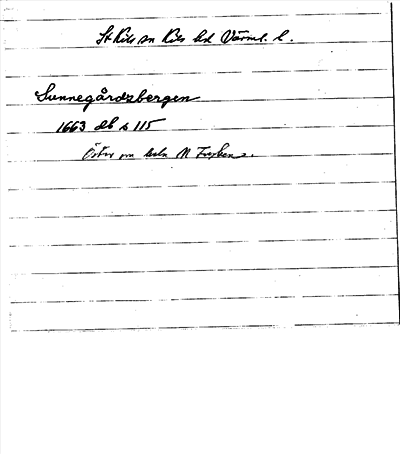 St. Kils sn Kils hd Värml. l.
Sunnegårdsbergen
1663 db s 115
Öster om N Fryken